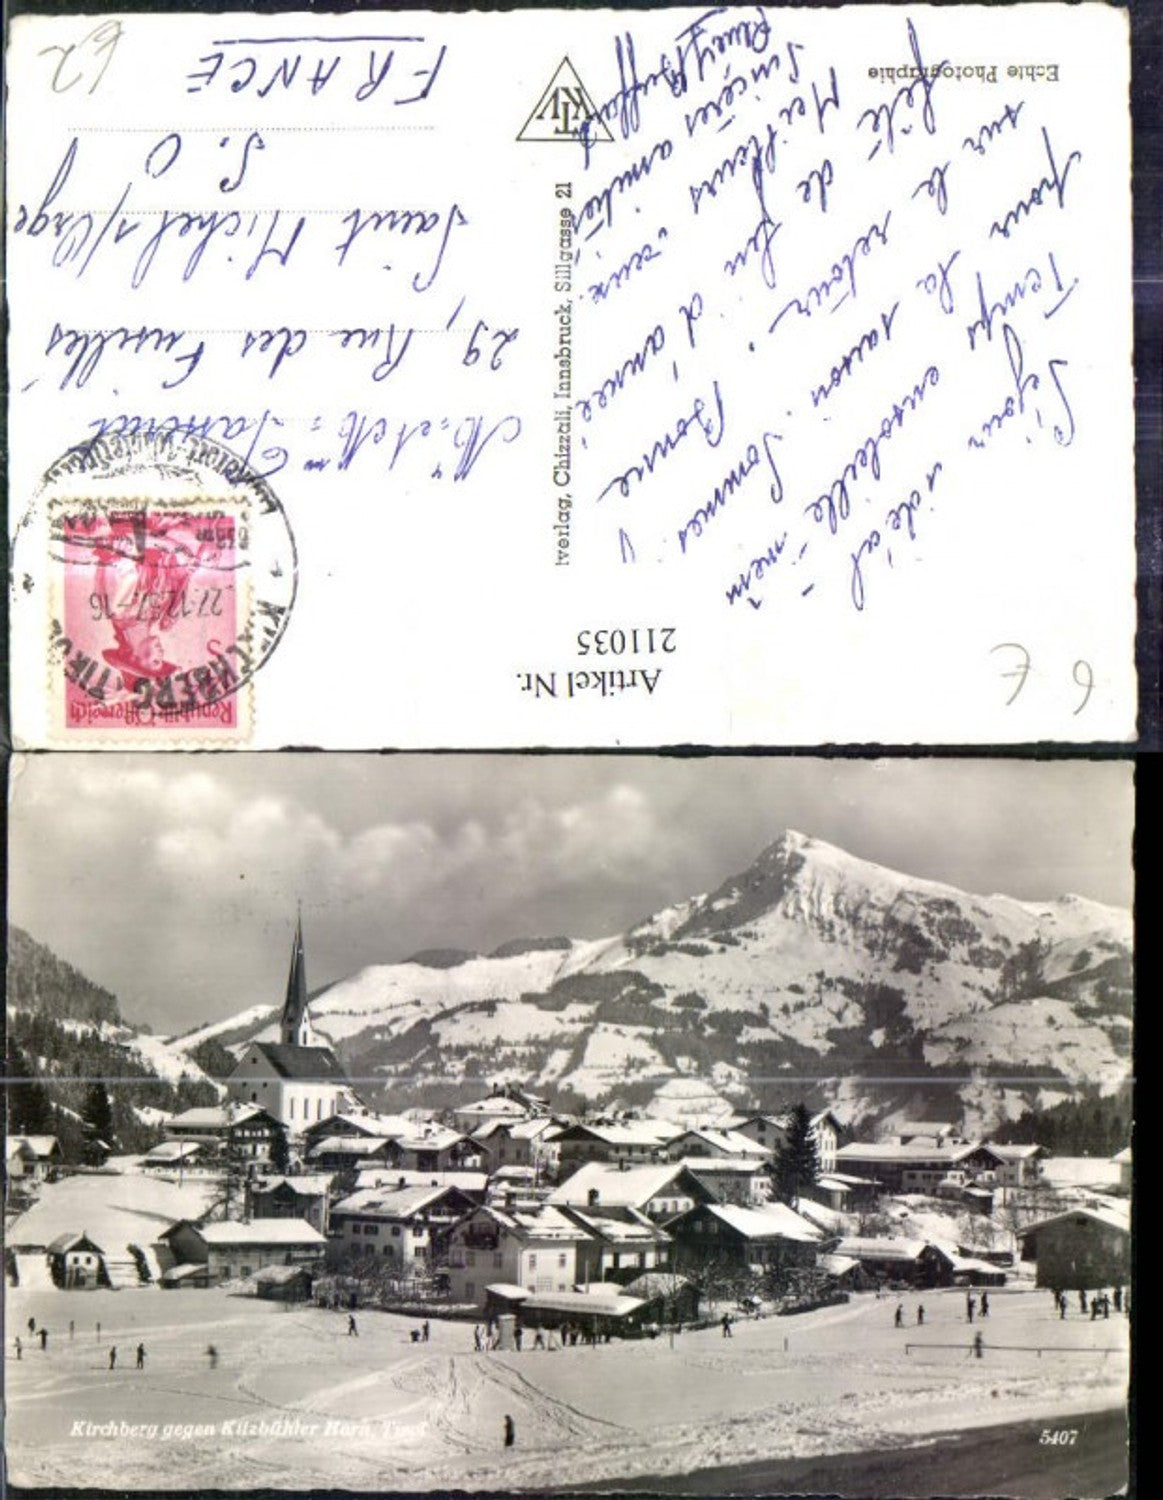 Echte Photographie
KTV
tverlag, Chizzali, Innsbruck, Sillgasse 21
Séjour idéal -
Temps ensoleillé -
pour la saison. Sommes
sur le retour. Bonne
fête de fin d'année
Meilleurs vœux.
Sincères amitiés
M. et Mme
29, Rue des Fusillés
Saint Michel s/Orge
S. O
FRANCE
62
Republik Österreich
KIRCHBERG TIROL
27.12.57.-16
Artikel Nr.
211035
6 €
Kirchberg gegen Kitzbühler Horn, Tirol
5407